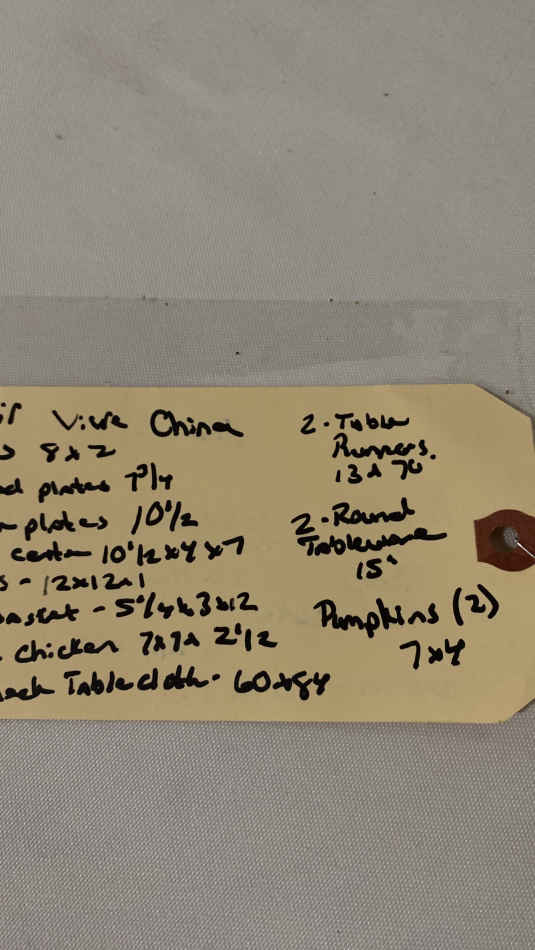 Vivre China
8x2
plates 7 3/4
plates 10 1/2
10 1/2 x 4 x 7
- 12x12x1
- 5 1/4 x 3 x 12
chicken 7x7x 2 1/2
Tablecloth - 60x84
2 - Table
Runners.
13 x 70"
2 - Round
Tableware
15"
Pumpkins (2)
7x4